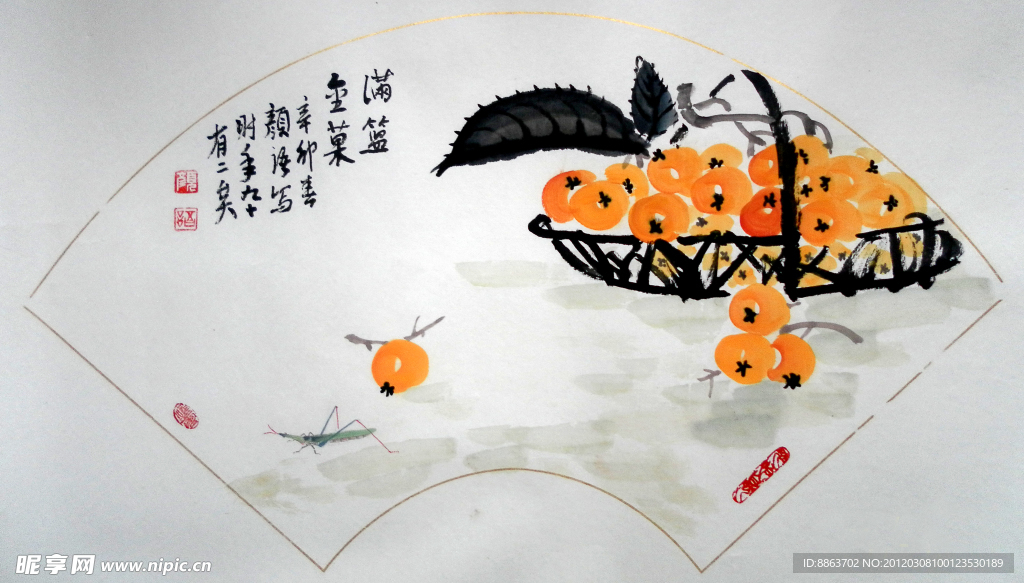 满篮
金菓
辛卯春
颜语写
时年九十
有二矣
颜
语
昵享网 www.nipic.cn
ID:8863702 NO:20120308100123530189